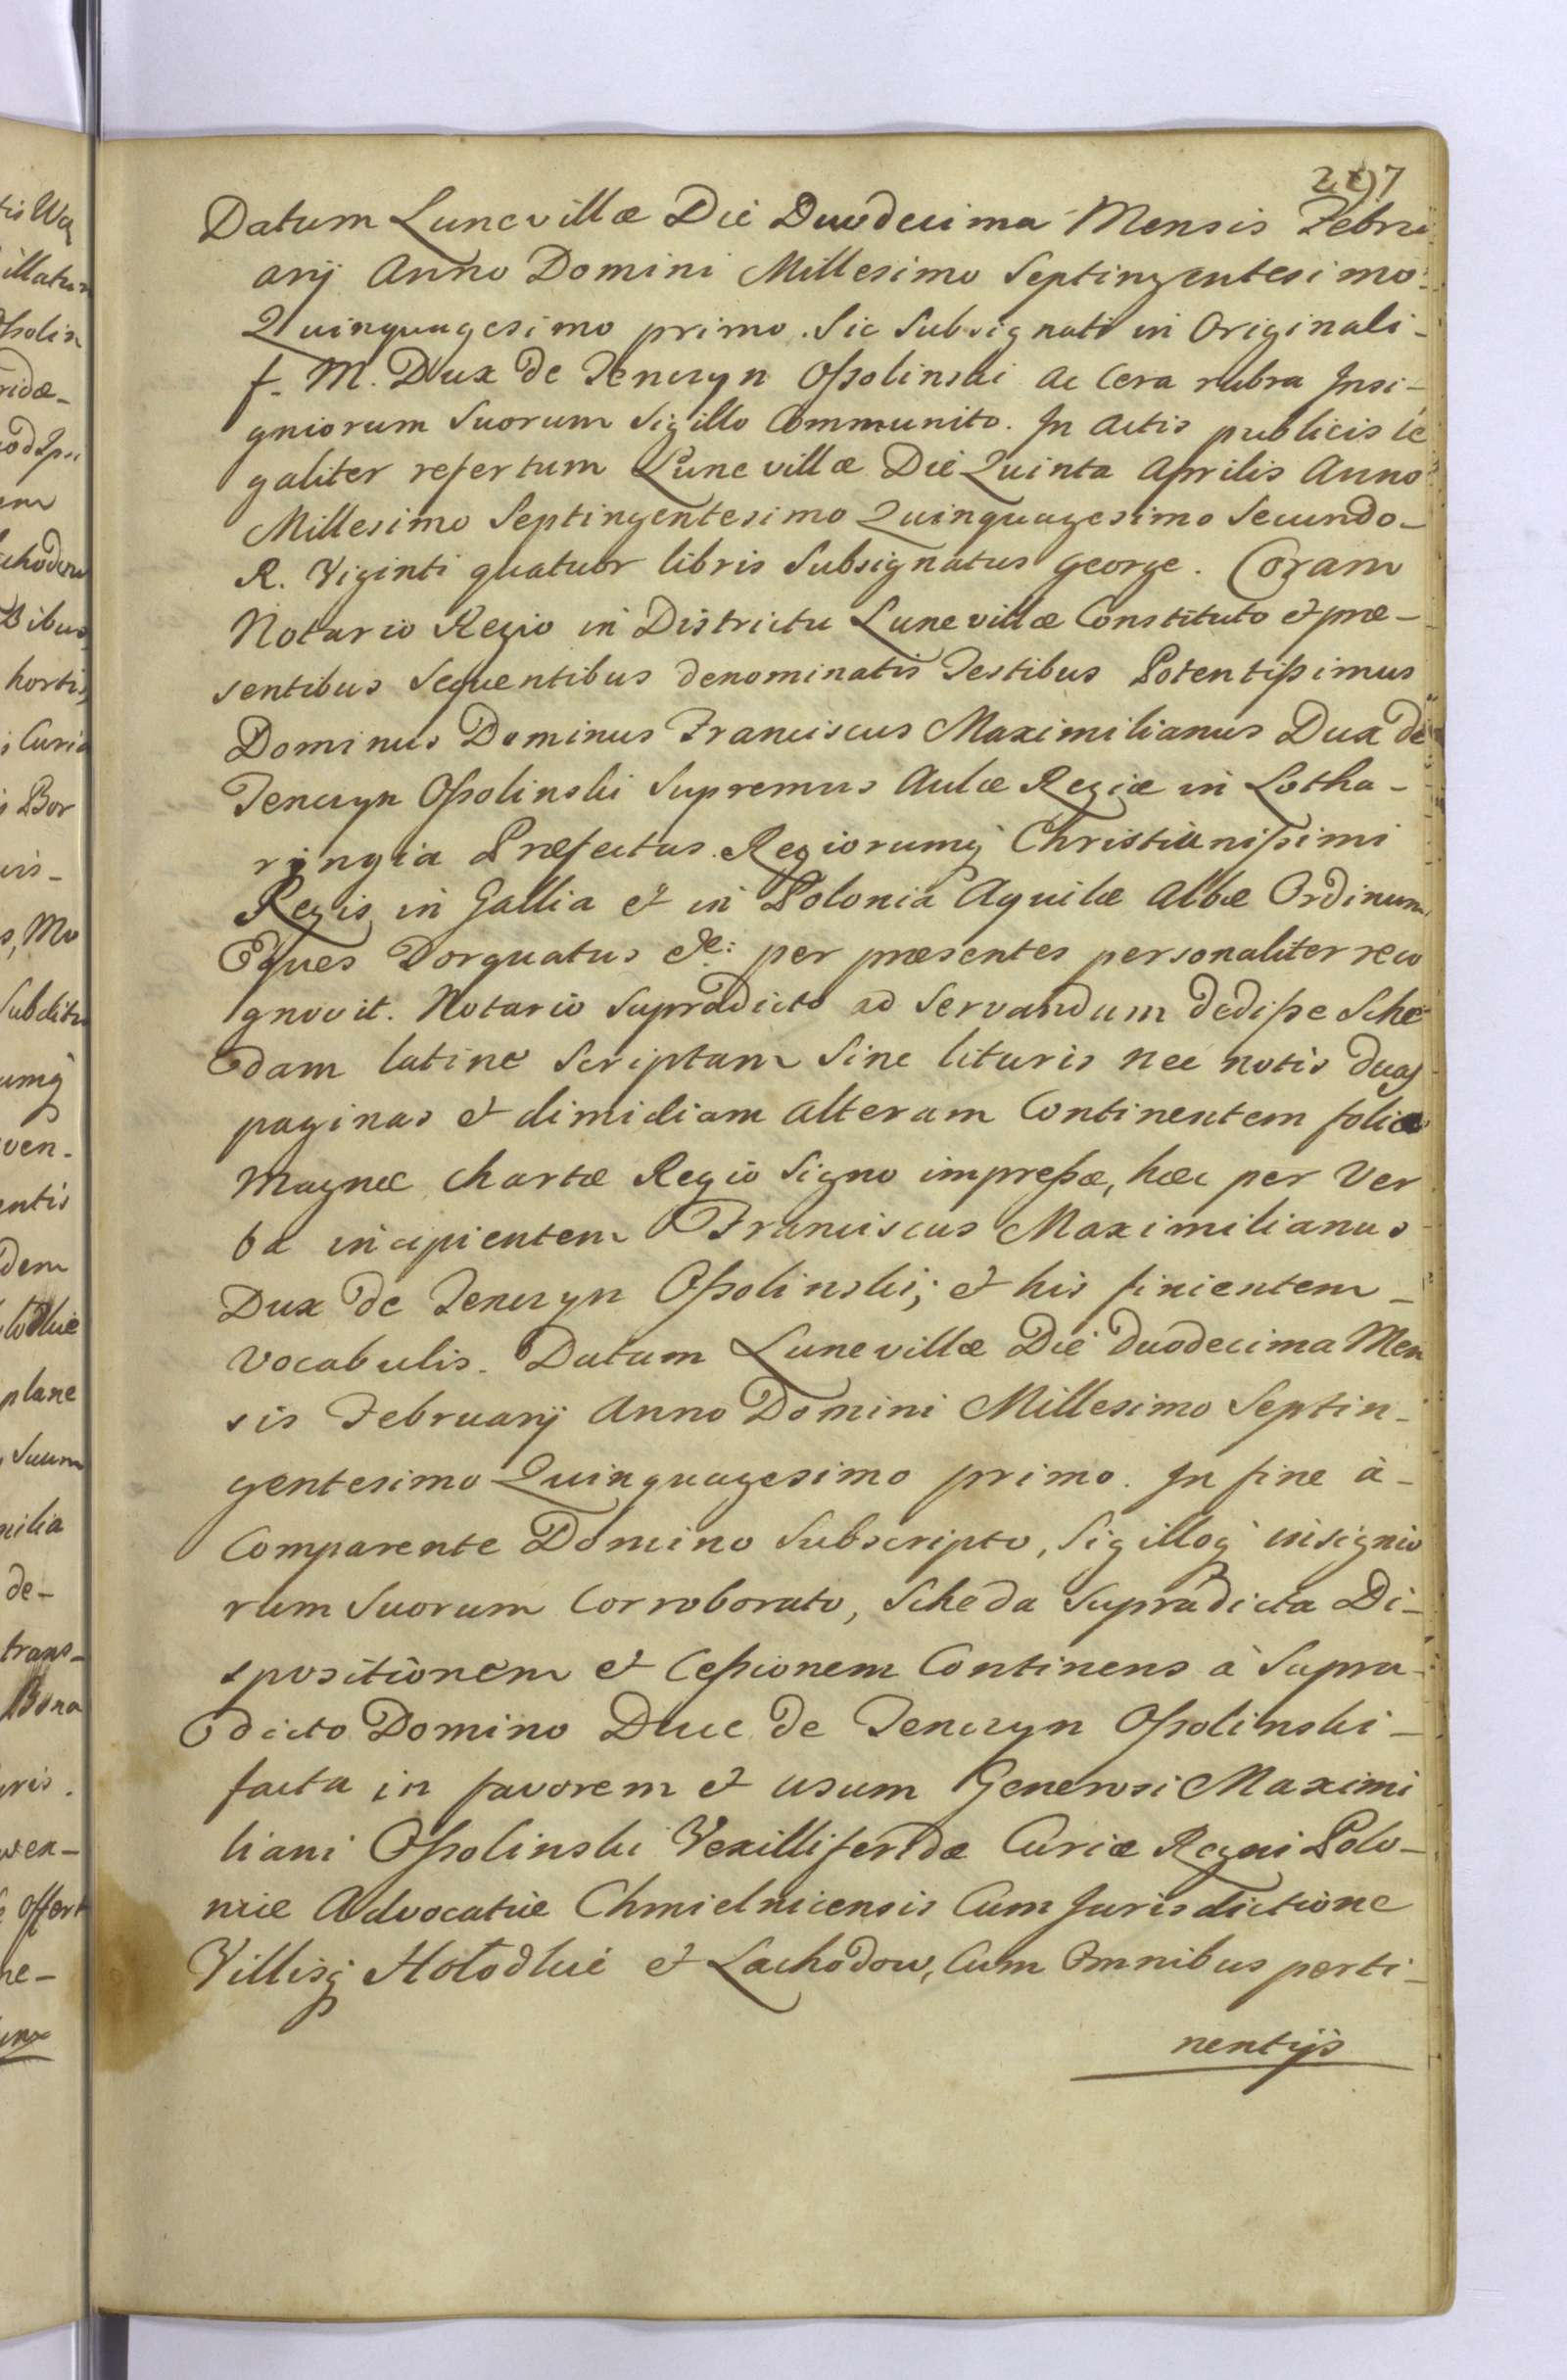 Datum Lunevillæ Die Duodecima Mensis Febru
arij Anno Domini Millesimo Septingentesimo
Quinquagesimo primo. Sic Subsignati in Originali-
f. M. Dux de Tenczyn Ossolinski ac Cera rubra Insi-
gniorum Suorum Sigillo Communito. In Actis publicis le
galiter refertum Lunevillæ Die Quinta Aprilis Anno
Millesimo Septingentesimo Quinquagesimo Secundo-
R. Viginti quatuor libris Subsignatus George. Coram
Notario Regio in Districtu Lunevillæ Constituto et præ-
sentibus Sequentibus denominatis Testibus Potentissimus
Dominus Dominus Franciscus Maximilianus Dux de
Tenczyn Ossolinski Supremus Aulæ Regiæ in Lotha-
ringia Præfectus Regiorumq Christianissimi
Regis in Gallia et in Polonia Aquilæ Albæ Ordinum
Eques Torquatus &c: per præsentes personaliter reco
gnovit. Notario Supradicto ad Servandum dedisse Sche
dam latine Scriptam Sine lituris nec notis duas
paginas et dimidiam alteram Continentem folio
Magnæ Chartæ Regio Signo impressæ, hæc per Ver
ba incipientem Franciscus Maximilianus
Dux de Tenczyn Ossolinski; et his finientem-
vocabulis. Datum Lunevillæ Die duodecima Men
sis Februarij Anno Domini Millesimo Septin-
gentesimo Quinquagesimo primo. In fine à-
Comparente Domino Subscripto, Sigilloq insignio
rum Suorum Corroborato, Scheda Supradicta Di-
spositionem et Cessionem Continens à Supra-
dicto Domino Duce de Tenczyn Ossolinski-
facta in favorem et usum Generosi Maximi
liani Ossolinski Vexilliferidæ Curiæ Regni Polo-
niæ Advocatiæ Chmielnicensis Cum Jurisdictione
Villisq Hołodkie et Lachodow, Cum Omnibus perti-
nentijs